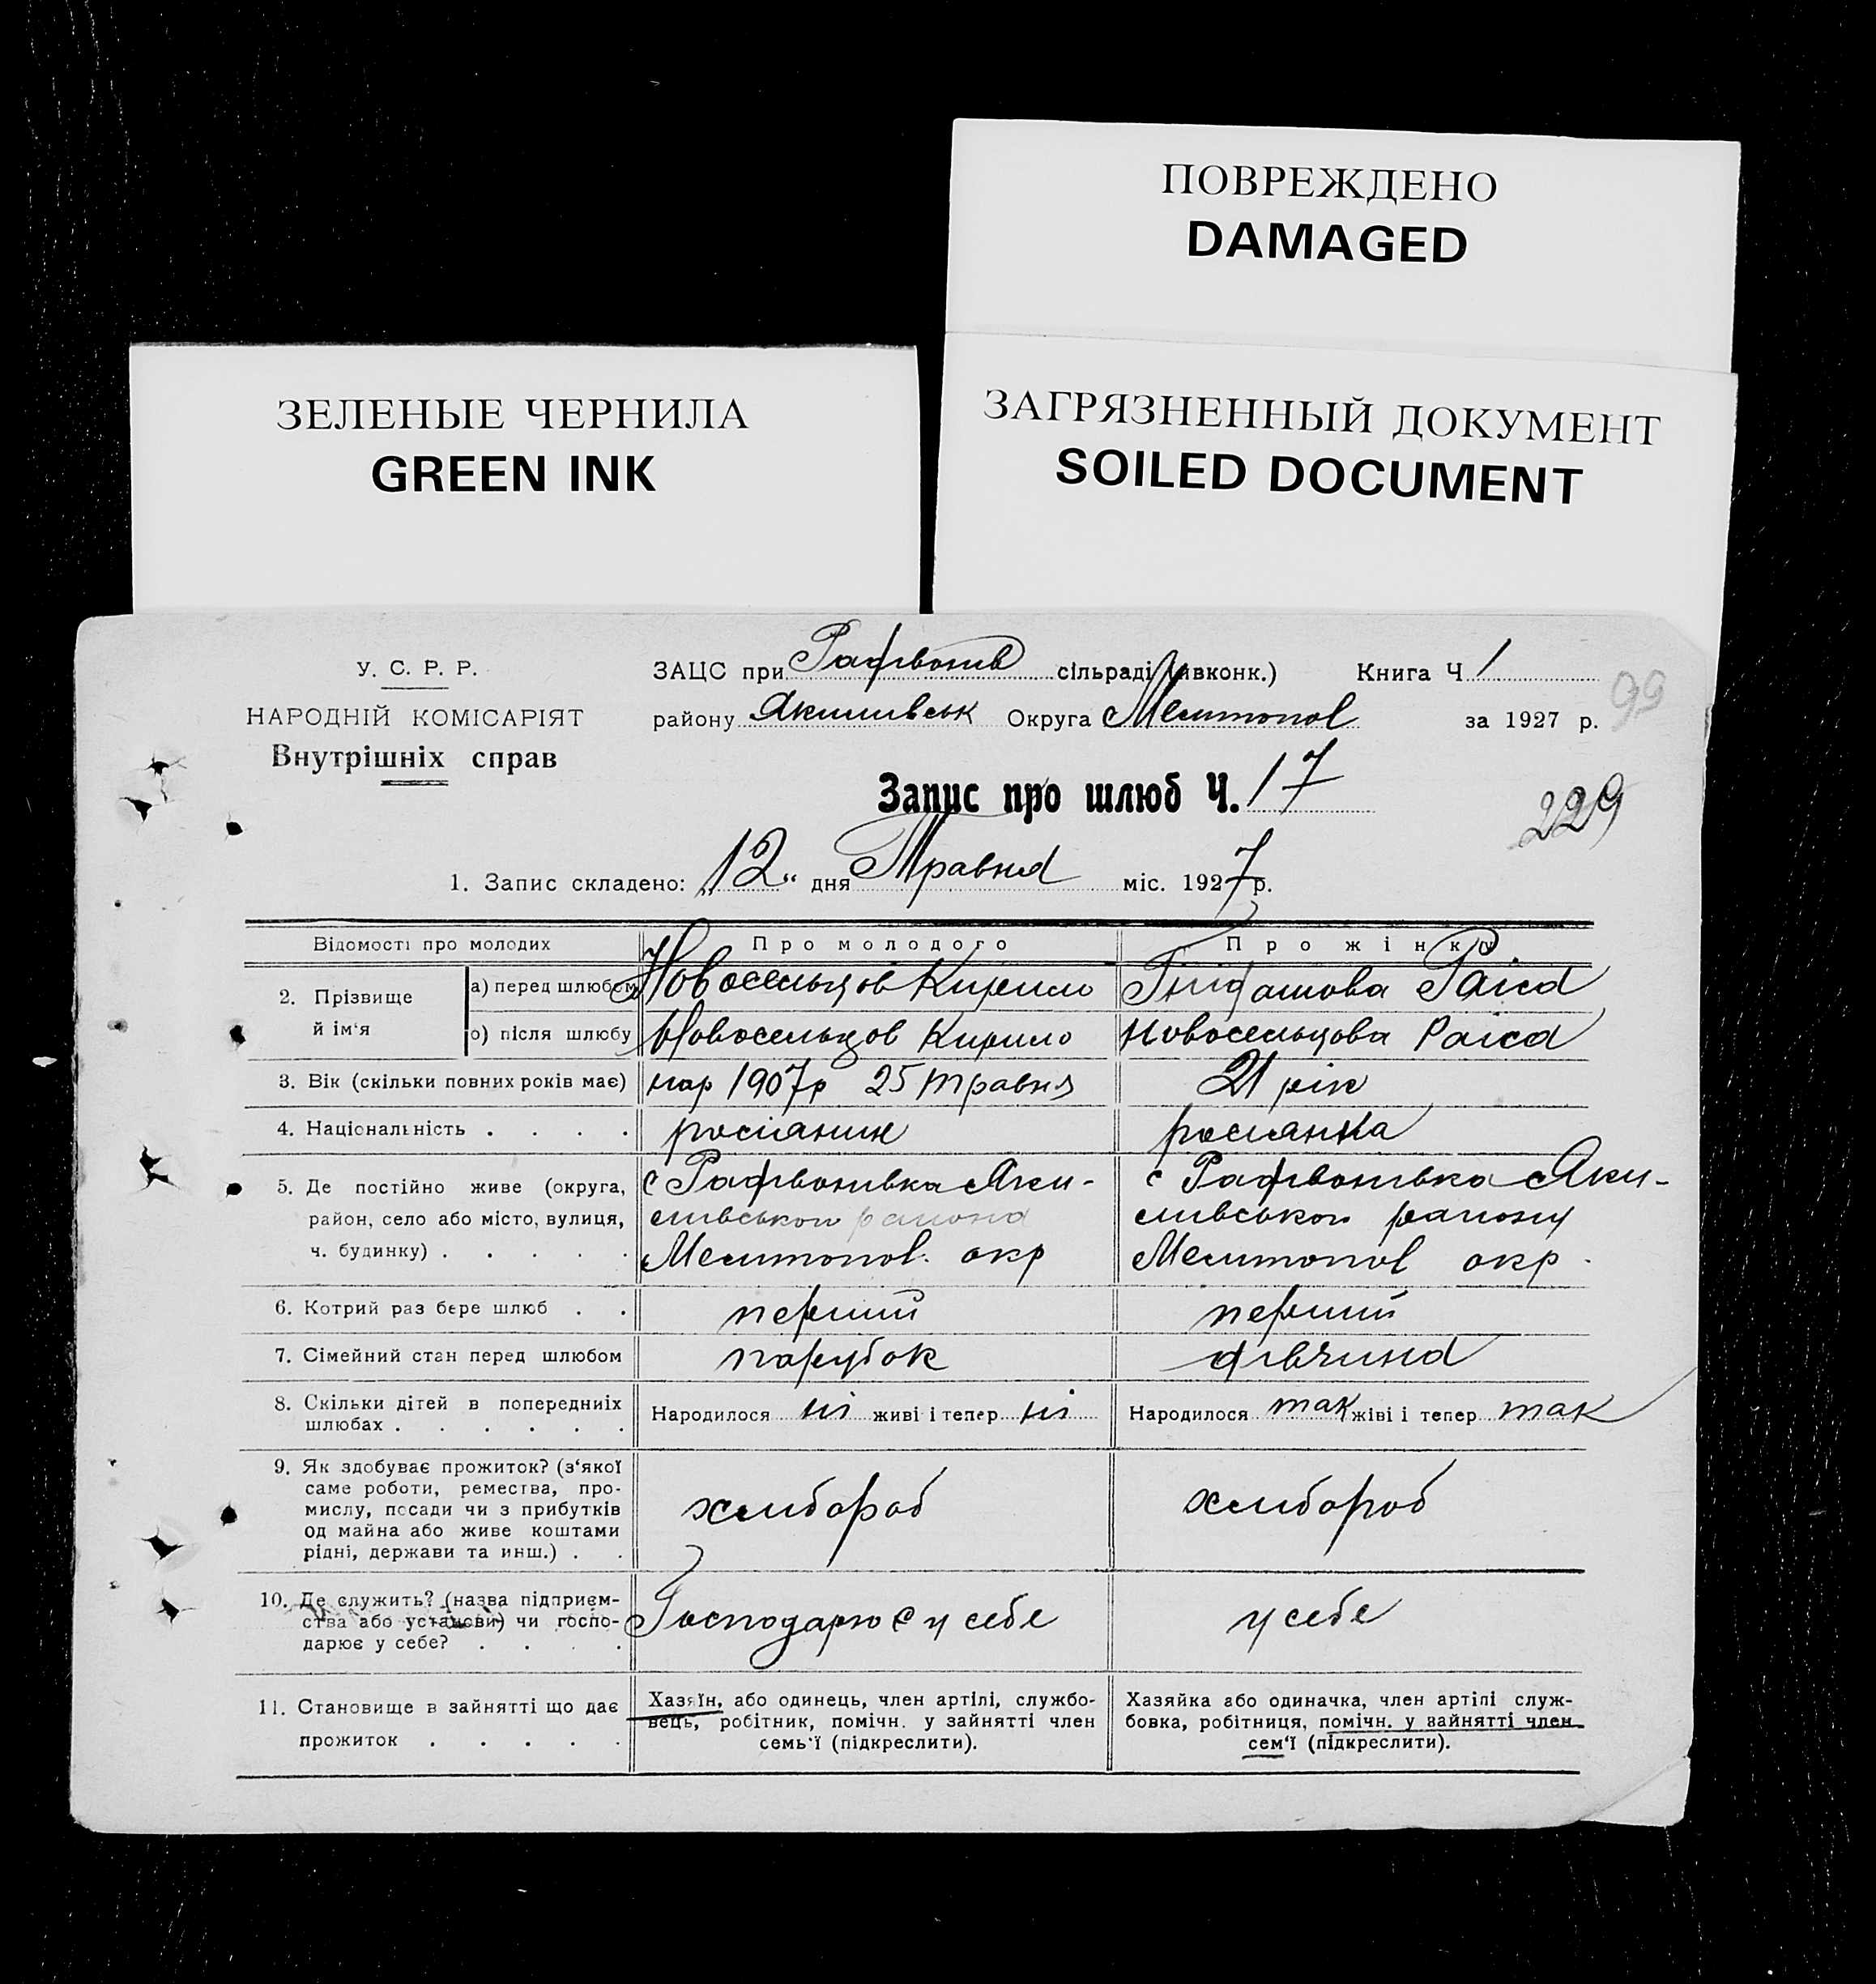 ПОВРЕЖДЕНО
DAMAGED
ЗЕЛЕНЫЕ ЧЕРНИЛА
GREEN INK
ЗАГРЯЗНЕННЫЙ ДОКУМЕНТ
SOILED DOCUMENT
У. С. Р. Р.
НАРОДНІЙ КОМІСАРІЯТ
Внутрішніх справ
ЗАЦС при Рафівонів сільраді (ивконк.) Книга Ч 1
району Якимівськ Округа Мелитопол за 1927 р. 99
Запис про шлюб Ч. 17
229
1. Запис складено: „12" дня Травня міс. 1927 р.
Відомості про молодих Про молодого Про жінку
2. Прізвище й ім'я
а) перед шлюбом Новосельцов Кирило Раіса
о) після шлюбу Новосельцов Кирило Новосельцова Раіса
3. Вік (скільки повних років має) нар 1907р 25 травня 21 рік
4. Національність . . . . росіянин росіянка
5. Де постійно живе (округа, с Рафівонівка Яки- с Рафівонівка Яки-
район, село або місто, вулиця, мівськои района мівськои району
ч. будинку) . . . . . Мелитопол. окр Мелитопол окр.
6. Котрий раз бере шлюб . . перший перший
7. Сімейний стан перед шлюбом парубок дівчина
8. Скільки дітей в попередниіх
шлюбах . . . . . . Народилося ні живі і тепер ні Народилося так жіві і тепер так
9. Як здобуває прожиток? (з'якої
саме роботи, ремества, про-
мислу, посади чи з прибутків хлібороб хлібороб
од майна або живе коштами
рідні, держави та инш.) . .
10. Де служить? (назва підприєм-
ства або установи) чи госпо- Господарює у себе у себе
дарює у себе? . . . .
11. Становище в зайнятті що дає
прожиток . . . . .
Хазяїн, або одинець, член артілі, службо-
вець, робітник, помічн. у зайнятті член
семь'ї (підкреслити).
Хазяйка або одиначка, член артілі служ-
бовка, робітниця, помічн. у зайнятті член
сем'ї (підкреслити).